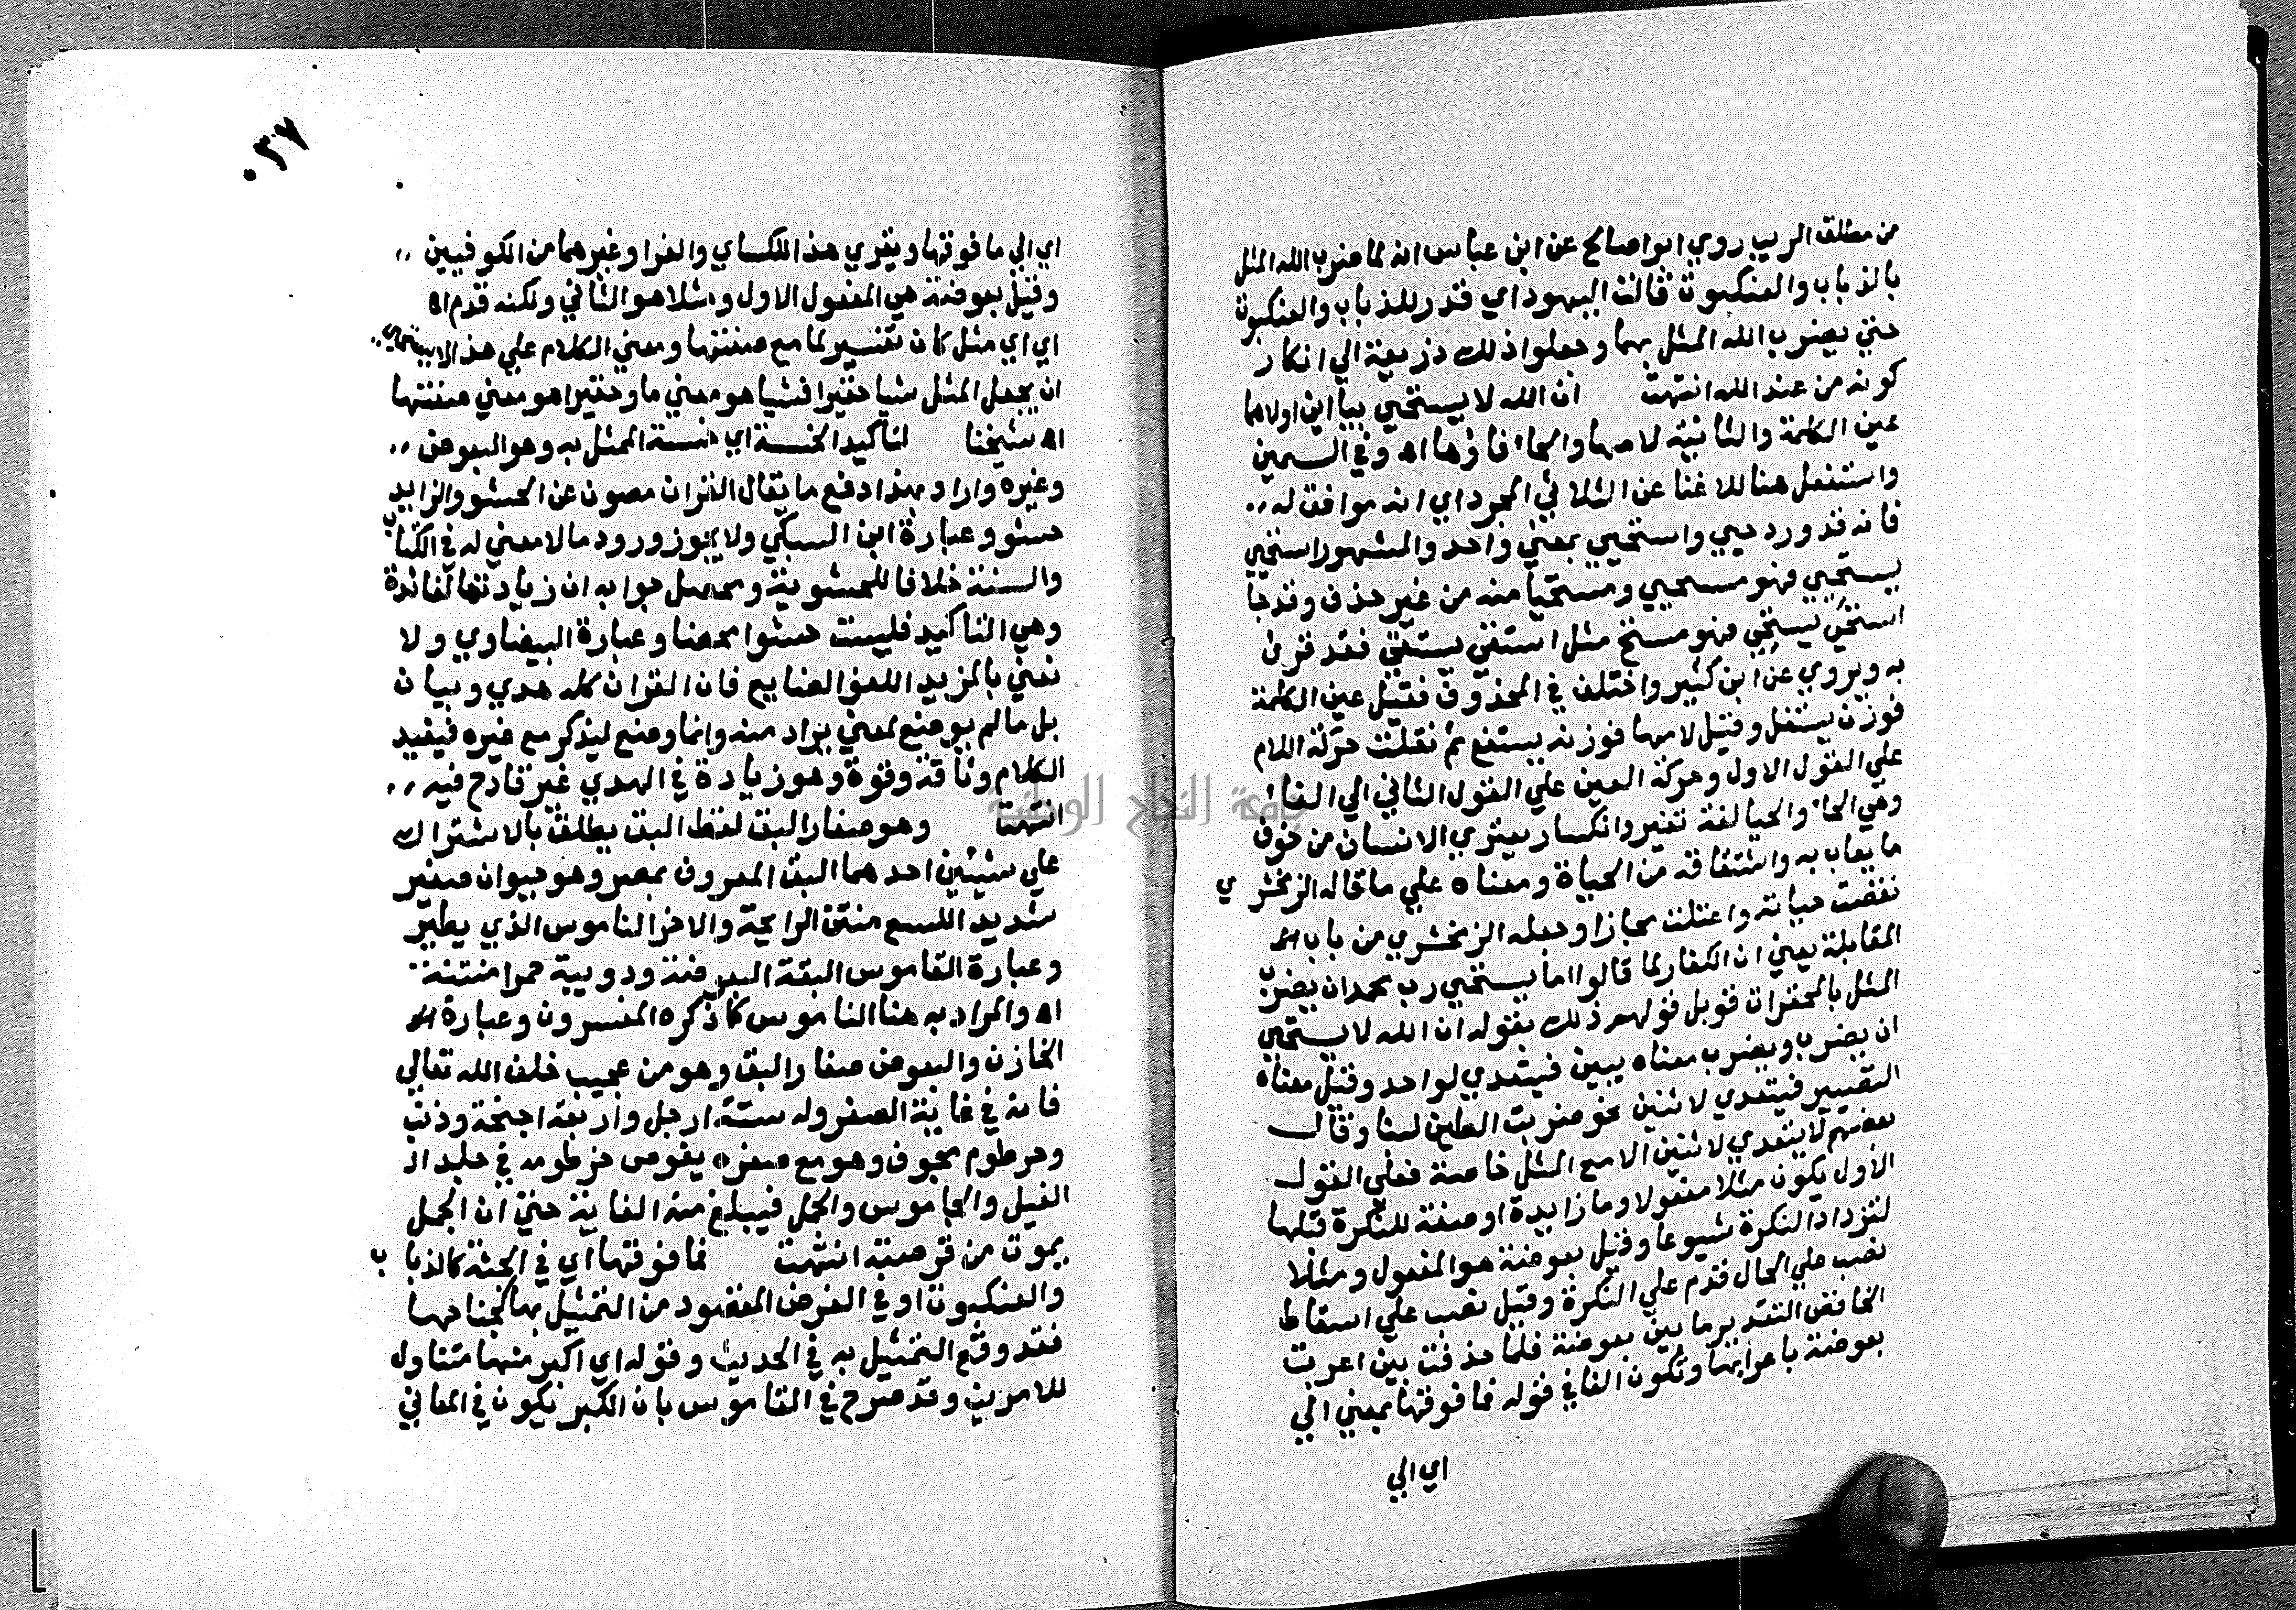 من مطلق الريب روي ابوا صالح عن ابن عباس انه لما ضرب الله المثل
بالذباب والعنكبوت قالت اليهود اي قدر للذباب والعنكبوت
حتي يضرب الله المثل بهما وجعلوا ذلك ذريعة الي انكار
كونه من عند الله انتهت ان الله لا يستحيي بياين اولاهما
عين الكلمة والثانية لامها والحاء فاؤها اه وفي السمين
واستفعل هنا للاغنا عن الثلاثي المجرد اي انه موافق له
فانه قد ورد حيي واستحيي بمعني واحد والمشهور استحيي
يستحيي فهو مستحيي ومستحيا منه من غير حذف وقد جا
استحي يستحي فهو مستح مثل استقي يستقي فقد قرئ
به ويروي عن ابن كثير واختلف في المحذوف فقيل عين الكلمة
فوزن يستفل وقيل لامها فوزنه يستفع ثم نقلت حركة اللام
علي القول الاول وحركة العين علي القول الثاني الي الفاء
وهي الحاء والحيا لغة تغير وانكسار يعتري الانسان من خوف
ما يعاب به واشتقاقه من الحياة ومعناه علي ما قاله الزمخشري
نقصت حياته واعتلت مجازا وجعله الزمخشري من باب
المقابلة يعني ان الكفار لما قالوا اما يستحيي رب محمد ان يضرب
المثل بالمحقرات قوبل قولهم ذلك بقوله ان الله لا يستحيي
ان يضرب ويضرب معناه يبين فيتعدي لواحد وقيل معناه
التصيير فيتعدي لاثنين نحو ضربت الطين لبنا وقال
بعضهم لا يتعدي لاثنين الا مع المثل خاصة فعلي القول
الاول يكون مثلا مفعولا وما زايدة او صفة للنكرة قبلها
لتزداد النكرة شيوعا وقيل بعوضة هو المفعول ومثلا
نصب علي الحال قدم علي النكرة وقيل نصب علي اسقاط
الخافض التقدير ما بين بعوضة فلما حذفت بين اعربت
بعوضة باعرابها وتكون الفا في قوله فما فوقها بمعني الي
اي الي
٠٣٧
اي الي ما فوقها ويعزي هذا للكساي والفرا وغيرهما من الكوفيين
وقيل بعوضة هي المفعول الاول ومثلا هو الثاني ولكنه قدم اه
اي اي مثل كان تفسير لما مع صفتها ومعني الكلام علي هذا لا يستحيي
ان يجعل المثل شيا حقيرا فشيا هو معني ما وحقيرا هو معني صفتها
اه شيخنا لتاكيد الخسة اي خسة الممثل به وهو البعوض
وغيره واراد بهذا دفع ما يقال القران مصون عن الحشو والزايد
حشو وعبارة ابن السبكي ولا يجوز ورود ما لا معني له في الكتاب
والسنة خلافا للحشوية ومحصل جوابه ان زيادتها لفائدة
وهي التاكيد فليست حشوا محضا وعبارة البيضاوي ولا
نعني بالمزيد اللغو الضايع فان القران كله هدي وبيان
بل ما لم يوضع لمعني يراد منه وانما وضع ليذكر مع غيره فيفيد
الكلام وثاقة وقوة وهو زيادة في الهدي غير قادح فيه
انتهت وهو صغار البق لفظ البق يطلق بالاشتراك
علي شيئين احدهما البق المعروف بمصر وهو حيوان صغير
شديد اللسع منتن الرايحة والاخر الناموس الذي يطير
وعبارة القاموس البقة البعوضة ودويبة حمرا منتنة
اه والمراد به هنا الناموس كما ذكره المفسرون وعبارة
الخازن والبعوض صغار البق وهو من عجيب خلق الله تعالي
فانه في غاية الصغر وله ستة ارجل واربعة اجنحة وذنب
وخرطوم مجوف وهو مع صغره يغوص خرطومه في جلد ا
الفيل والجاموس والجمل فيبلغ منه الغاية حتي ان الجمل
يموت من قرصته انتهت فما فوقها اي في الجثة كالذباب
والعنكبوت او في الغرض المقصود من التمثيل بها كجناحها
فقد وقع التمثيل به في الحديث وقوله اي اكبر منها متناول
للامرين وقد صرح في القاموس بان الكبر يكون في المعاني
جامعة النجاح الوطنية